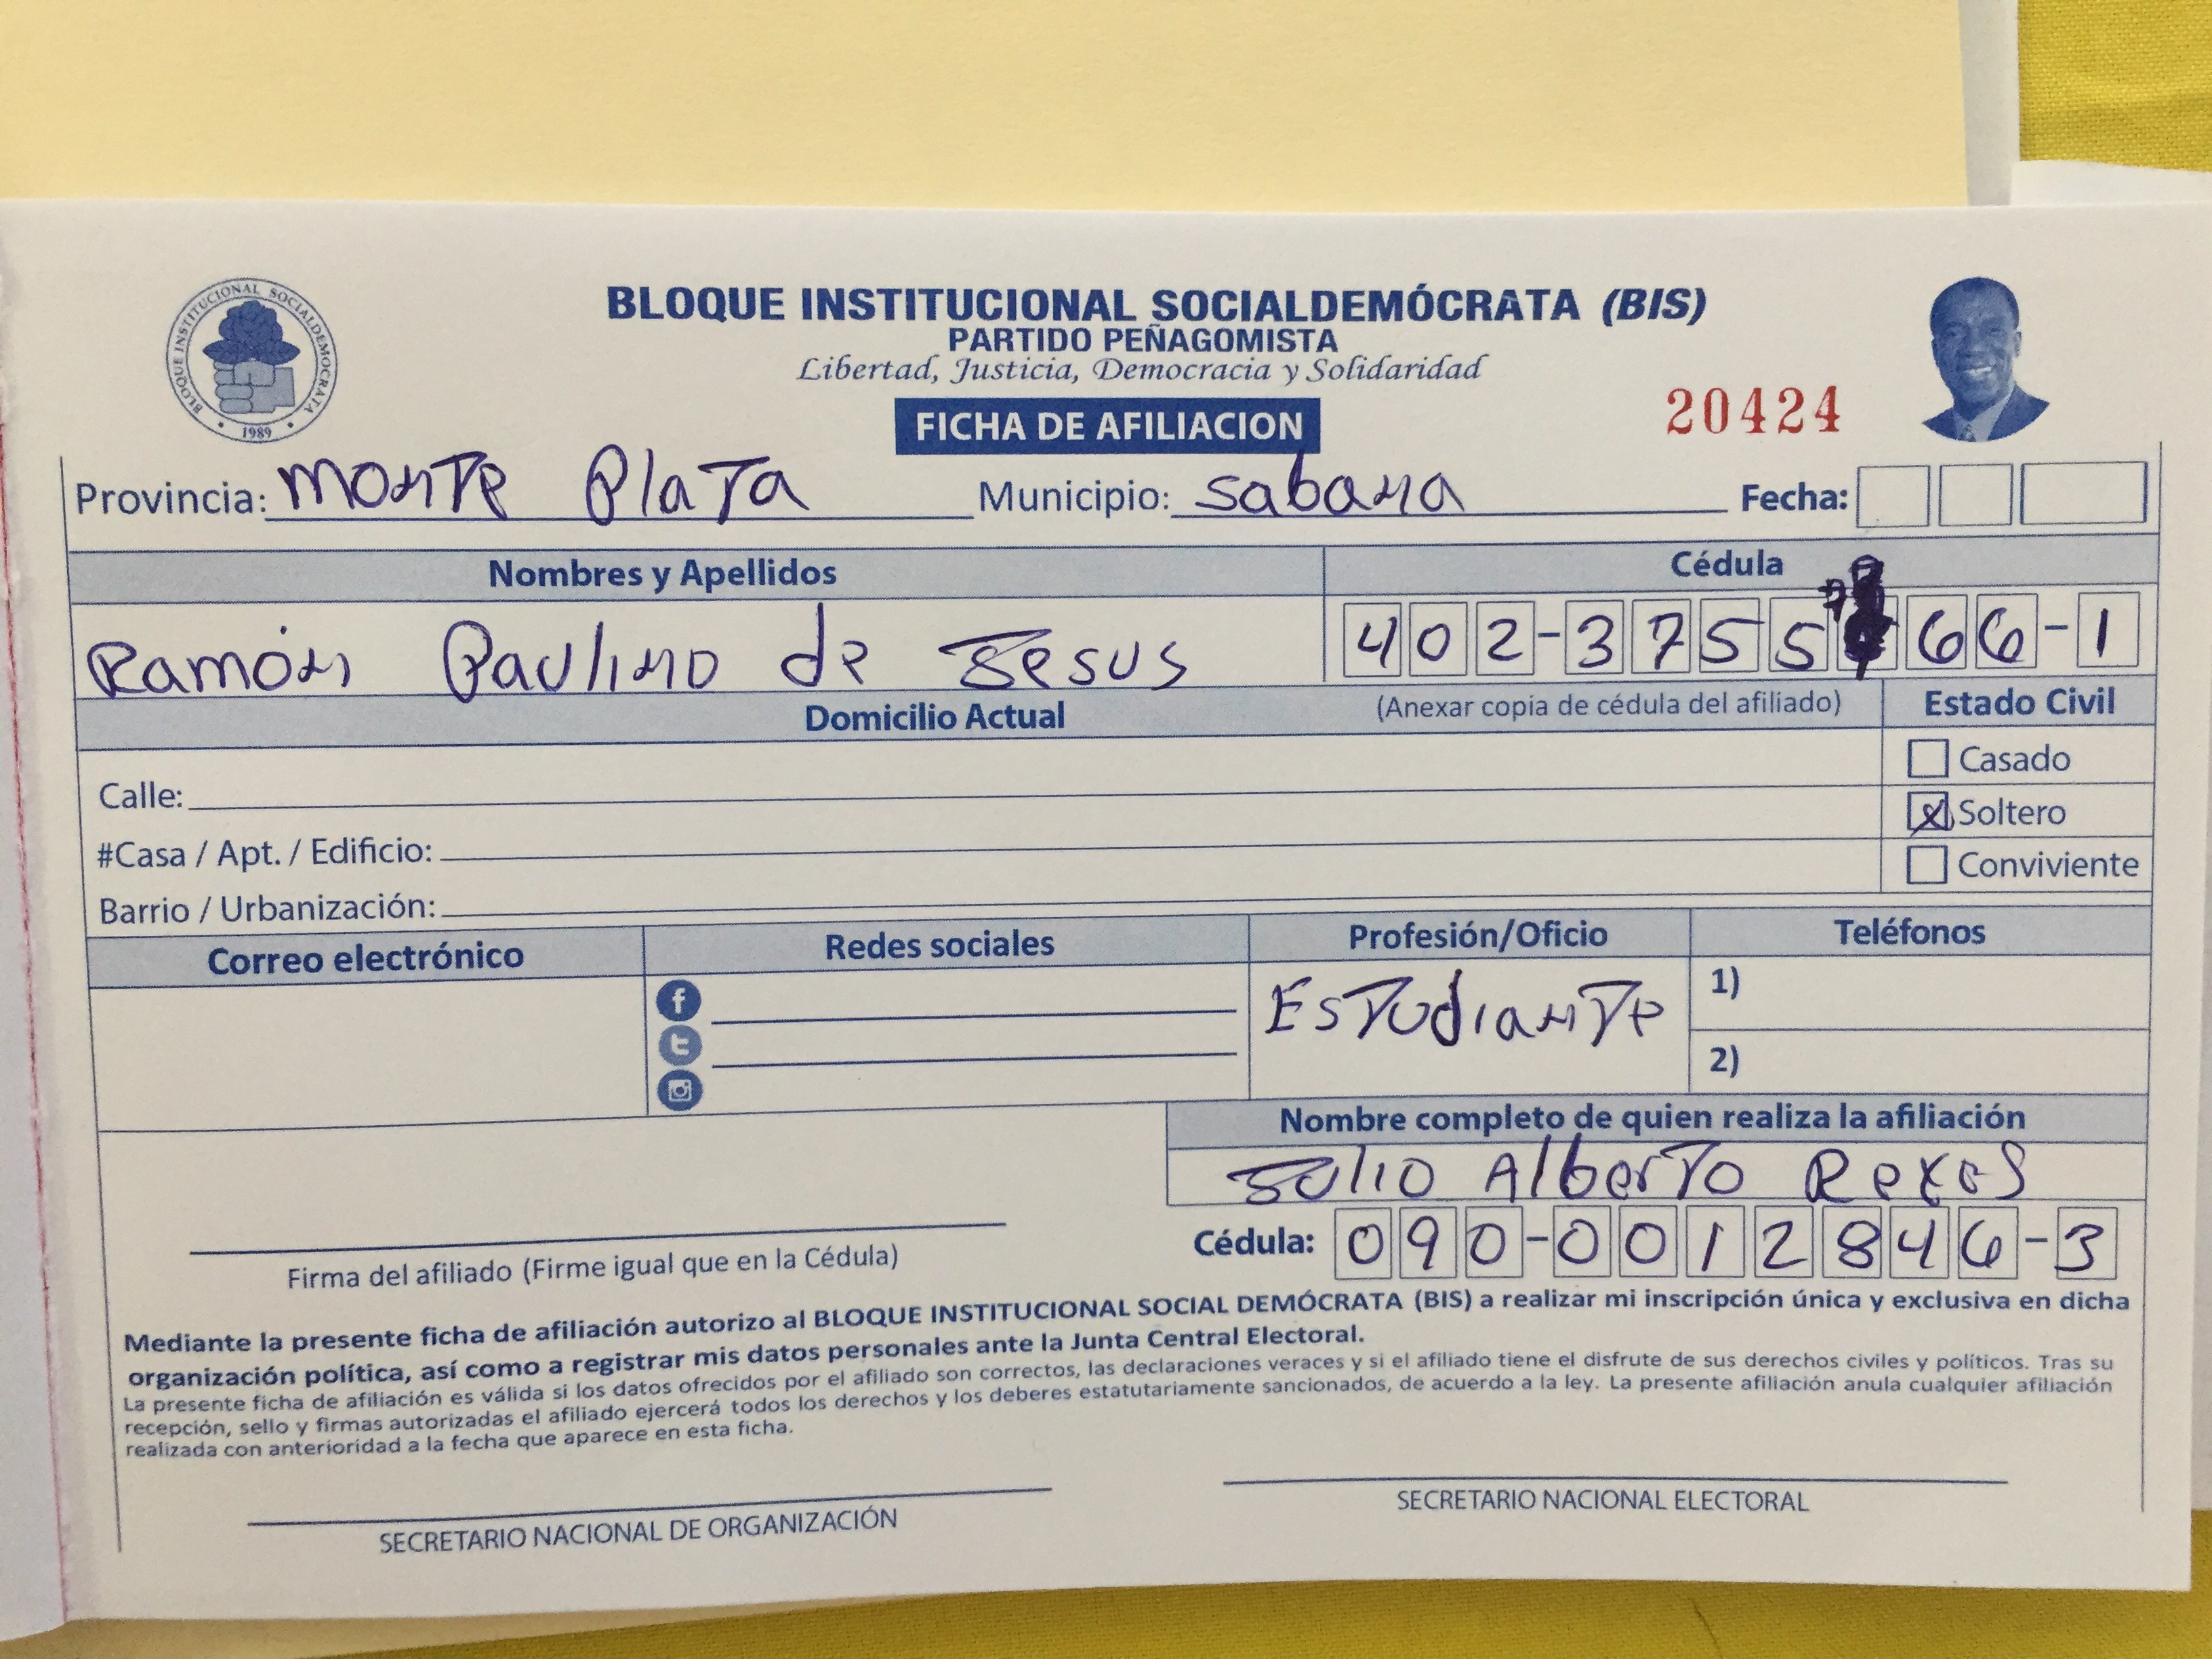 BLOQUE INSTITUCIONAL SOCIALDEMOCRATA
1989
BLOQUE INSTITUCIONAL SOCIALDEMÓCRATA (BIS)
PARTIDO PEÑAGOMISTA
Libertad, Justicia, Democracia y Solidaridad
FICHA DE AFILIACION
20424
Provincia: Monte Plata Municipio: Sabana Fecha:
Nombres y Apellidos Cédula
Ramón Paulino de Jesus 402-3755 66-1
Domicilio Actual (Anexar copia de cédula del afiliado) Estado Civil
Casado
Calle:
Soltero
#Casa / Apt. / Edificio:
Conviviente
Barrio / Urbanización:
Correo electrónico Redes sociales Profesión/Oficio Teléfonos
Estudiante
1)
2)
Nombre completo de quien realiza la afiliación
Julio Alberto Reyes
Cédula: 090-0012846-3
Firma del afiliado (Firme igual que en la Cédula)
Mediante la presente ficha de afiliación autorizo al BLOQUE INSTITUCIONAL SOCIAL DEMÓCRATA (BIS) a realizar mi inscripción única y exclusiva en dicha
organización política, así como a registrar mis datos personales ante la Junta Central Electoral.
La presente ficha de afiliación es válida si los datos ofrecidos por el afiliado son correctos, las declaraciones veraces y si el afiliado tiene el disfrute de sus derechos civiles y políticos. Tras su
recepción, sello y firmas autorizadas el afiliado ejercerá todos los derechos y los deberes estatutariamente sancionados, de acuerdo a la ley. La presente afiliación anula cualquier afiliación
realizada con anterioridad a la fecha que aparece en esta ficha.
SECRETARIO NACIONAL DE ORGANIZACIÓN
SECRETARIO NACIONAL ELECTORAL